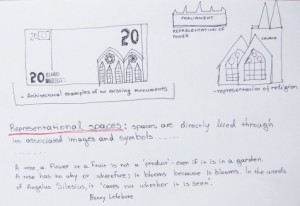 20
20
20 EURO
PARLIAMENT
REPRESENTATION OF
POWER
CHURCH
- Architectural examples of non existing monuments
- representation of religion
Representational spaces: spaces are directly lived through
its associated images and symbols......
A rose, a flower or a fruit is not a 'product' - even if it is in a garden.
A rose has no why or wherefore; it blooms because it blooms. In the words
of Angelus Silesius, it "cares not whether it is seen".
Henry Lefebvre